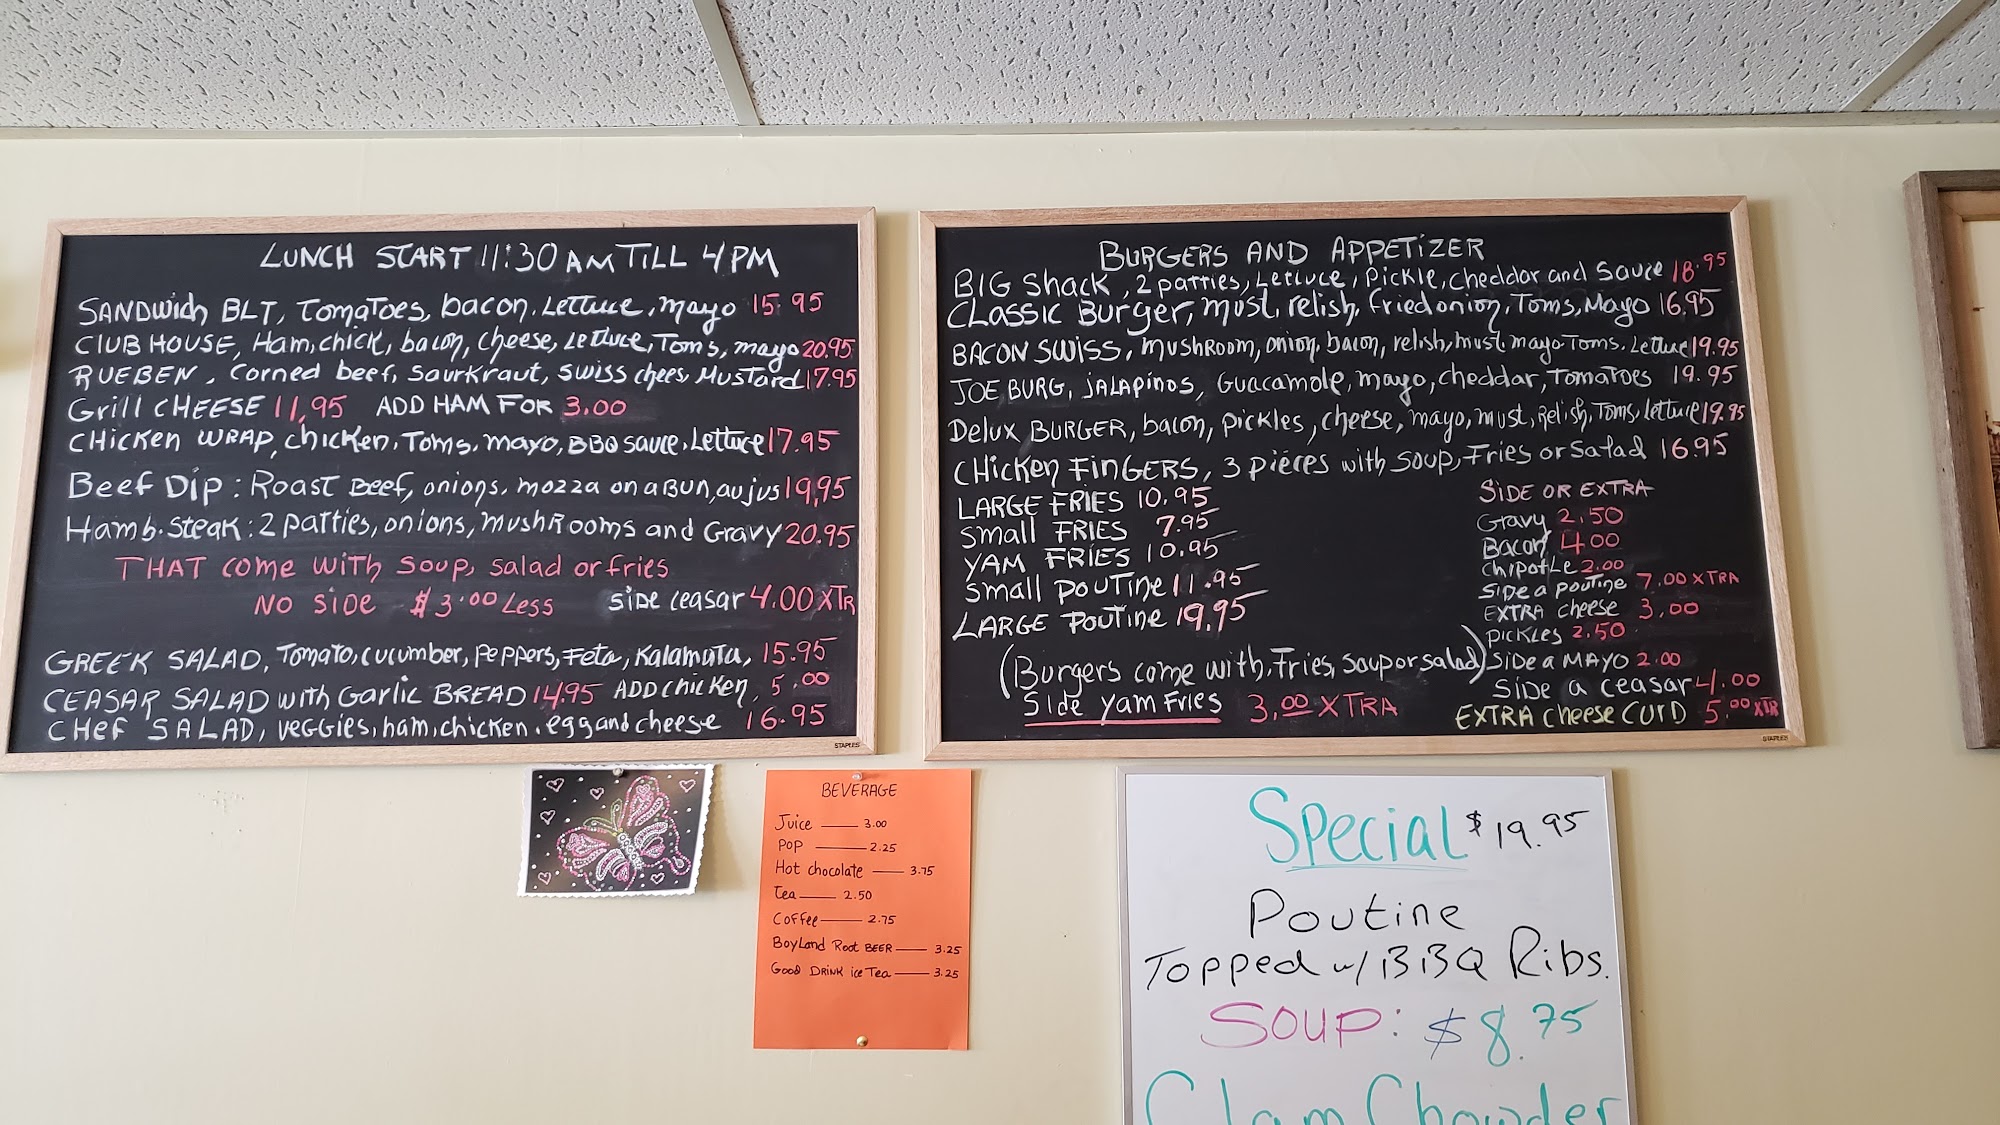 LUNCH START 11:30 AM TILL 4 PM
SANDWich BLT, TOMATOES, bacon, Lettuce, mayo 15.95
CLUB HOUSE, Ham, chick, bacon, cheese, Lettuce, Toms, mayo 20.95
RUEBEN, Corned beef, Saurkraut, swiss chees, Mustard 17.95
Grill CHEESE 11,95 ADD HAM FOR 3.00
CHicken WRAP, chicken, Toms, mayo, BBQ sauce, Lettuce 17.95
Beef Dip: Roast Beef, onions, mozza on a Bun, au jus 19,95
Hamb. Steak: 2 patties, onions, mushRooms and Gravy 20.95
THAT come with soup, salad or fries
NO SIDE $3.00 Less side ceasar 4.00 XTR
GREEK SALAD, Tomato, cucumber, peppers, Feta, Kalamata, 15.95
CEASAR SALAD with Garlic BREAD 14.95 ADD chicken, 5.00
CHef SALAD, veggies, ham, chicken, egg and cheese 16.95
STAPLES
BURGERS AND APPETIZER
BIG Shack, 2 patties, Lettuce, Pickle, cheddar and Sauce 18.95
CLASSIC Burger, must, relish, fried onion, Toms, Mayo 16.95
BACON SWISS, mushRoom, onion, bacon, relish, must, mayo Toms. Lettuce 19.95
JOE BURG, jALAPinos, Guacamole, mayo, cheddar, Tomatoes 19.95
Delux BURGER, bacon, pickles, cheese, mayo, must, Relish, Toms, lettuce 19.95
CHicken FinGERS, 3 pieces with soup, Fries or Salad 16.95
LARGE FRIES 10.95
Small FRIES 7.95
YAM FRIES 10.95
Small POUTINE 11.95
LARGE POUTINE 19.95
(Burgers come with, Fries, soup or salad)
Side Yam Fries 3.00 XTRA
SIDE OR EXTRA
Gravy 2.50
Bacon 4.00
Chipotle 2.00
Side a poutine 7.00 XTRA
EXTRA cheese 3.00
pickles 2.50
Side a MAYO 2.00
Side a ceasar 4.00
EXTRA cheese CURD 5.00 XTR
STAPLES
BEVERAGE
Juice 3.00
POP 2.25
Hot chocolate 3.75
Tea 2.50
Coffee 2.75
Boyland Root BEER 3.25
Good DRINK ice Tea 3.25
Special $19.95
Poutine
Topped w/ BBQ Ribs.
Soup: $8.75
Clam Chowder